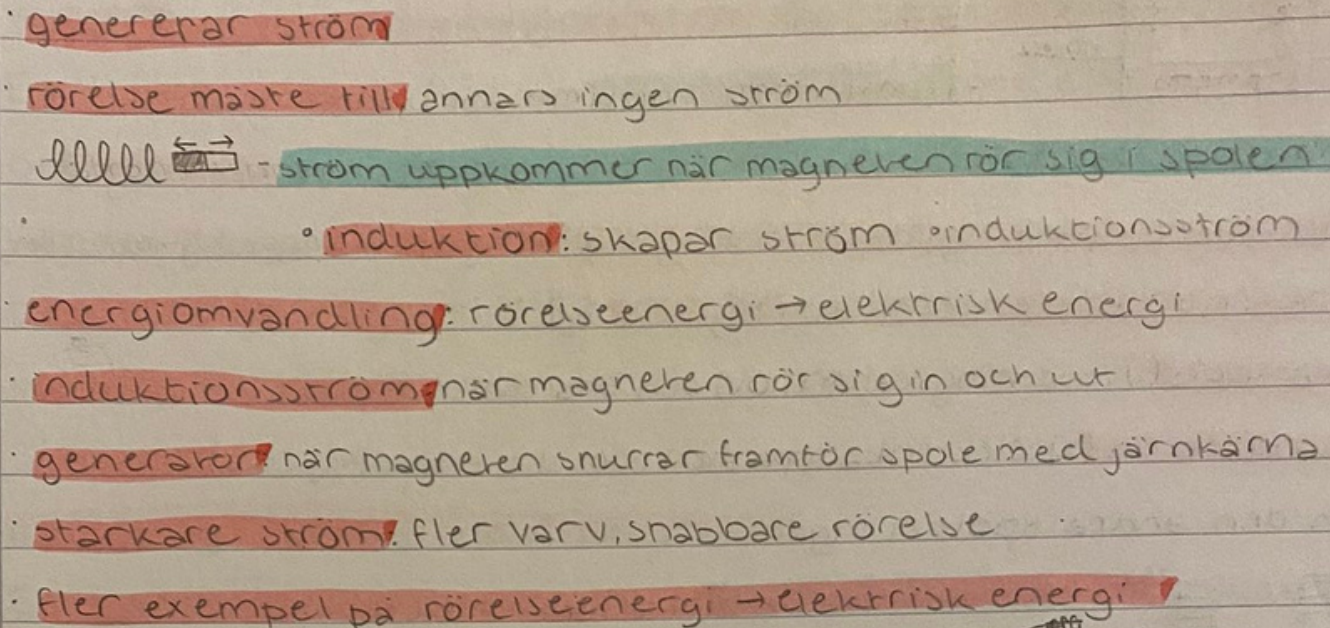 · genererar ström
· rörelse måste till, annars ingen ström
- ström uppkommer när magneten rör sig i spolen
· induktion: skapar ström · induktionsström
· energiomvandling: rörelseenergi → elektrisk energi
· induktionsström: när magneten rör sig in och ut
· generator: när magneten snurrar framför spole med järnkärna
· starkare ström: fler varv, snabbare rörelse
· fler exempel på rörelseenergi → elektrisk energi: